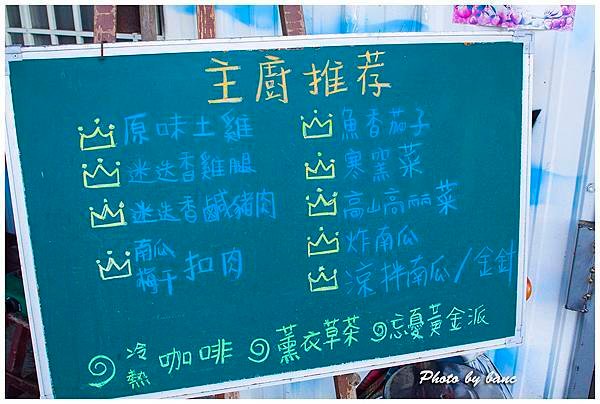 主廚推荐
原味土雞
迷迭香雞腿
迷迭香鹹豬肉
南瓜
梅干 扣肉
魚香茄子
寒窯菜
高山高丽菜
炸南瓜
涼拌南瓜/金針
冷
熱 咖啡 薰衣草茶 忘憂黃金派
Photo by banc